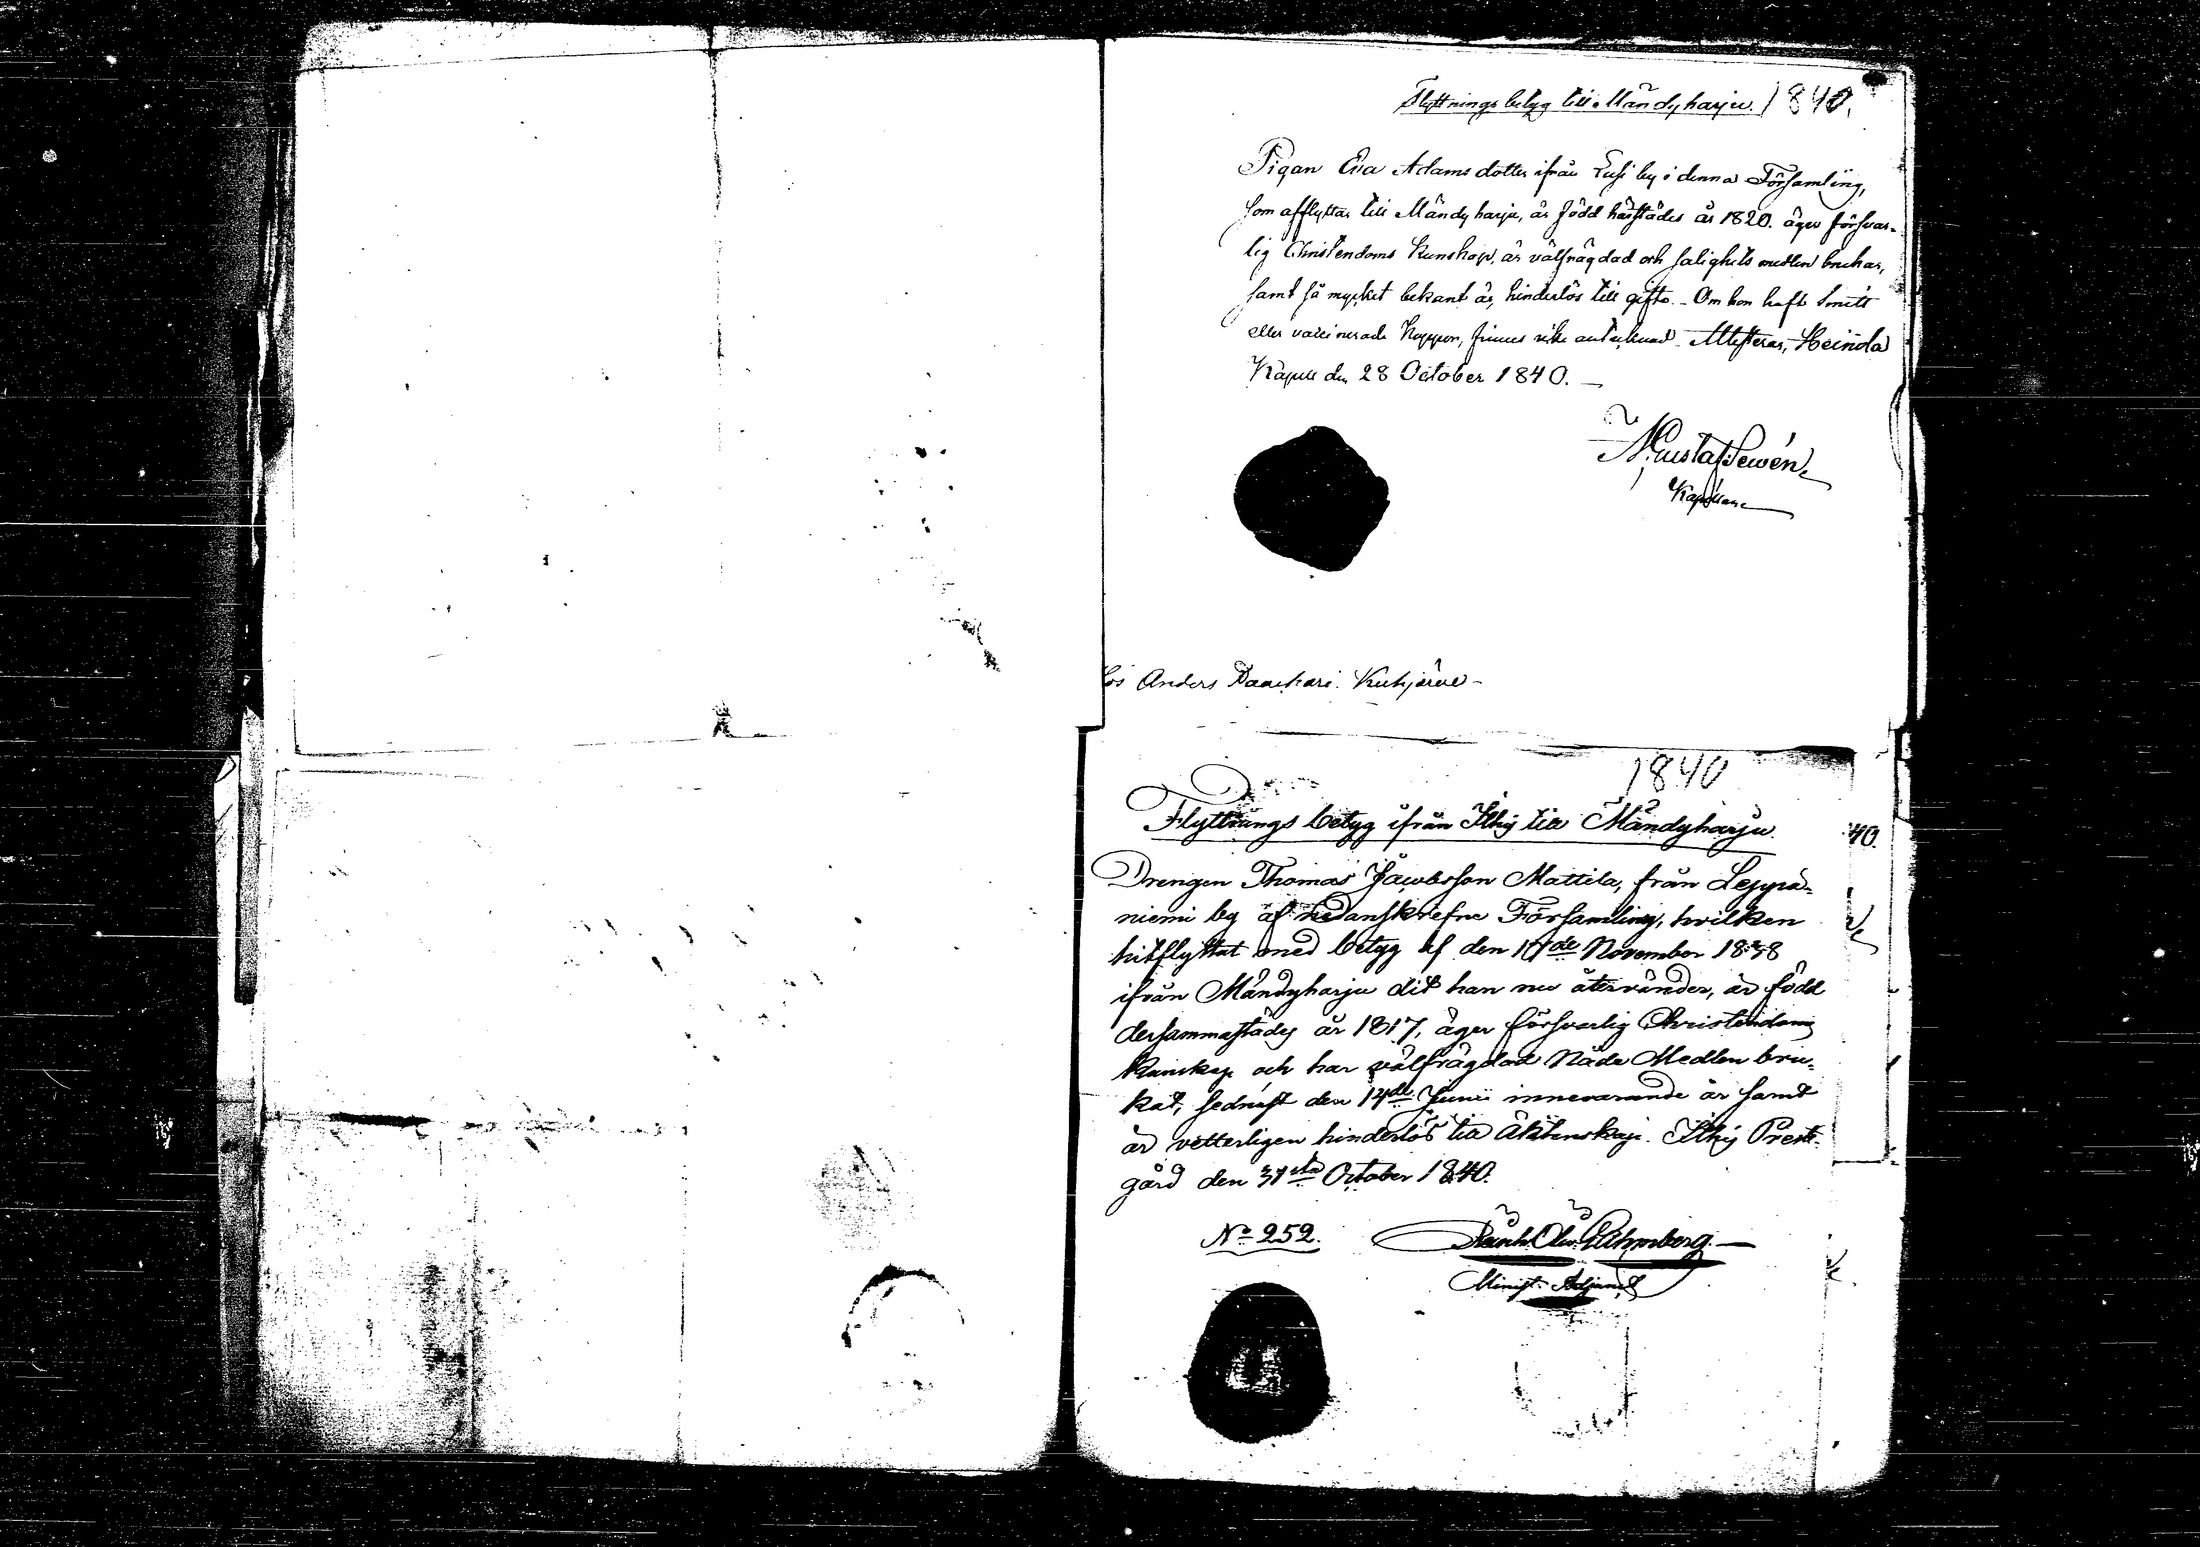 Flyttnings betyg till Mändyharju. 1840.
Pigan Eva Adams dotter ifrån Lusi by i denna Församling,
som afflyttar till Mändyharju, är född härstädes år 1820. äger försvar-
lig Christendoms Kunskap, är välfrägdad och salighets medlen brukar,
samt så mycket bekant är, hinderlös till gifte. - Om hon haft Smitt
eller vaccinerade Koppor, finnes icke antecknad. Attesteras, Heinola
Kapell den 28 October 1840. -
Gustaf
Kapellan
hos Anders Kuhjärve -
1840
Flyttnings betyg ifrån Ithij till Mändyharju.
40.
Drengen Thomas Jacobsson Mattila, från Leppä-
niemi by af nedanskrefne Församling, hvilken
hitflyttat med betyg af den 17de November 1838
ifrån Mändyharju dit han nu återvänder, är född
dersammastädes år 1817, äger försvarlig Christendoms
kunskap och har välfrägdad Nåde Medlen bru-
kat, sednast den 14de Junii innevarande år samt
är vetterligen hinderlös till Äktenskap. Ithij Preste-
gård den 31sta October 1840.
No 252.
Minist. Adjunct